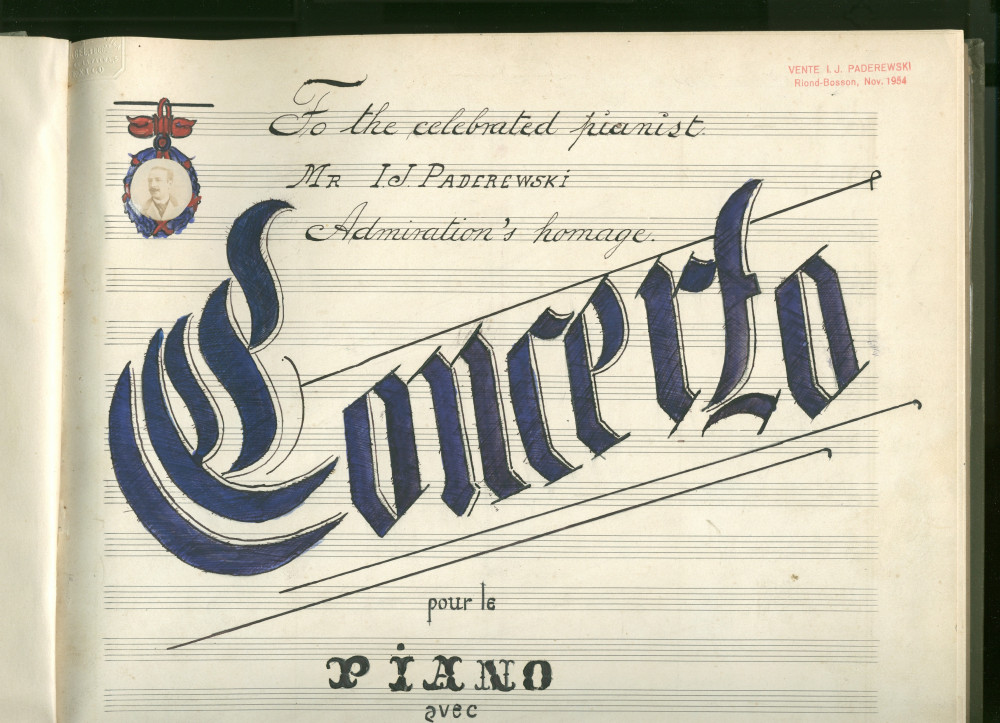 VENTE I. J. PADEREWSKI
Riond-Bosson, Nov. 1954
To the celebrated pianist
MR I J PADEREWSKI
Admiration's homage.
Concerto
pour le
PIANO
avec